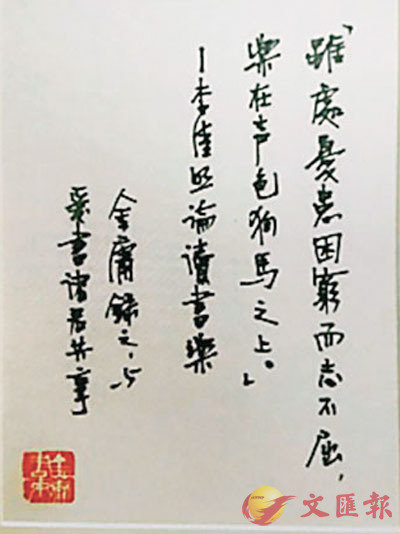 「雖處憂患困窮而志不屈，
樂在声色狗馬之上。」
—李清照論讀書樂
金庸錄之，与
愛書諸君共享
文匯報